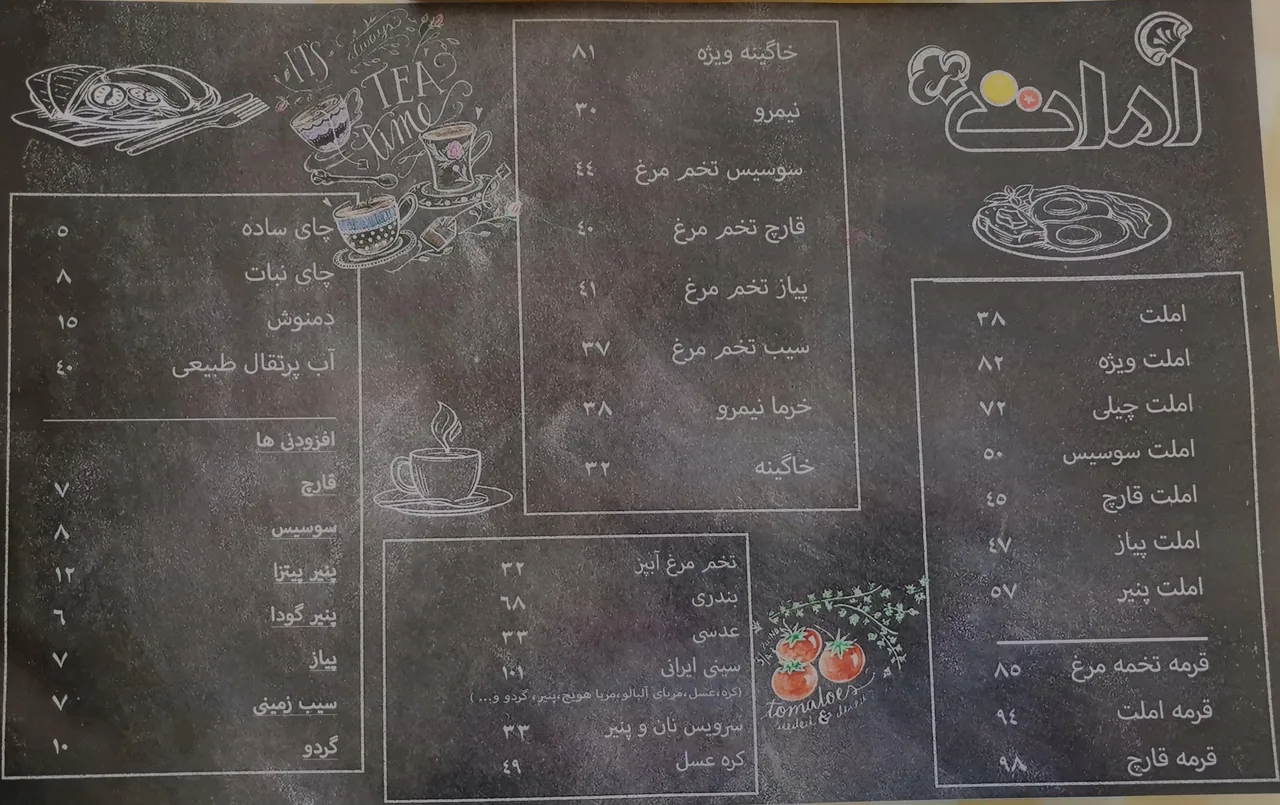 املت
املت ۳۸
املت ویژه ۸۲
املت چیلی ۷۲
املت سوسیس ۵۰
املت قارچ ۴۵
املت پیاز ۴۷
املت پنیر ۵۷
قرمه تخمه مرغ ۸۵
قرمه املت ۹۴
قرمه قارچ ۹۸
خاگینه ویژه ۸۱
نیمرو ۳۰
سوسیس تخم مرغ ٤٤
قارچ تخم مرغ ٤۰
پیاز تخم مرغ ٤۱
سیب تخم مرغ ۳۷
خرما نیمرو ۳۸
خاگینه ۳۲
تخم مرغ آبپز ۳۲
بندری ۶۸
عدسی ۳۳
سینی ایرانی ۱۰۱
(کره،عسل،مربای آلبالو،مربا هویج،پنیر، گردو و... )
سرویس نان و پنیر ۳۳
کره عسل ٤۹
tomatoes
IT'S
always
TEA
time
چای ساده ۵
چای نبات ۸
دمنوش ۱۵
آب پرتقال طبیعی ٤۰
افزودنی ها
قارچ ۷
سوسیس ۸
پنیر پیتزا ۱۲
پنیر گودا ۶
پیاز ۷
سیب زمینی ۷
گردو ۱۰